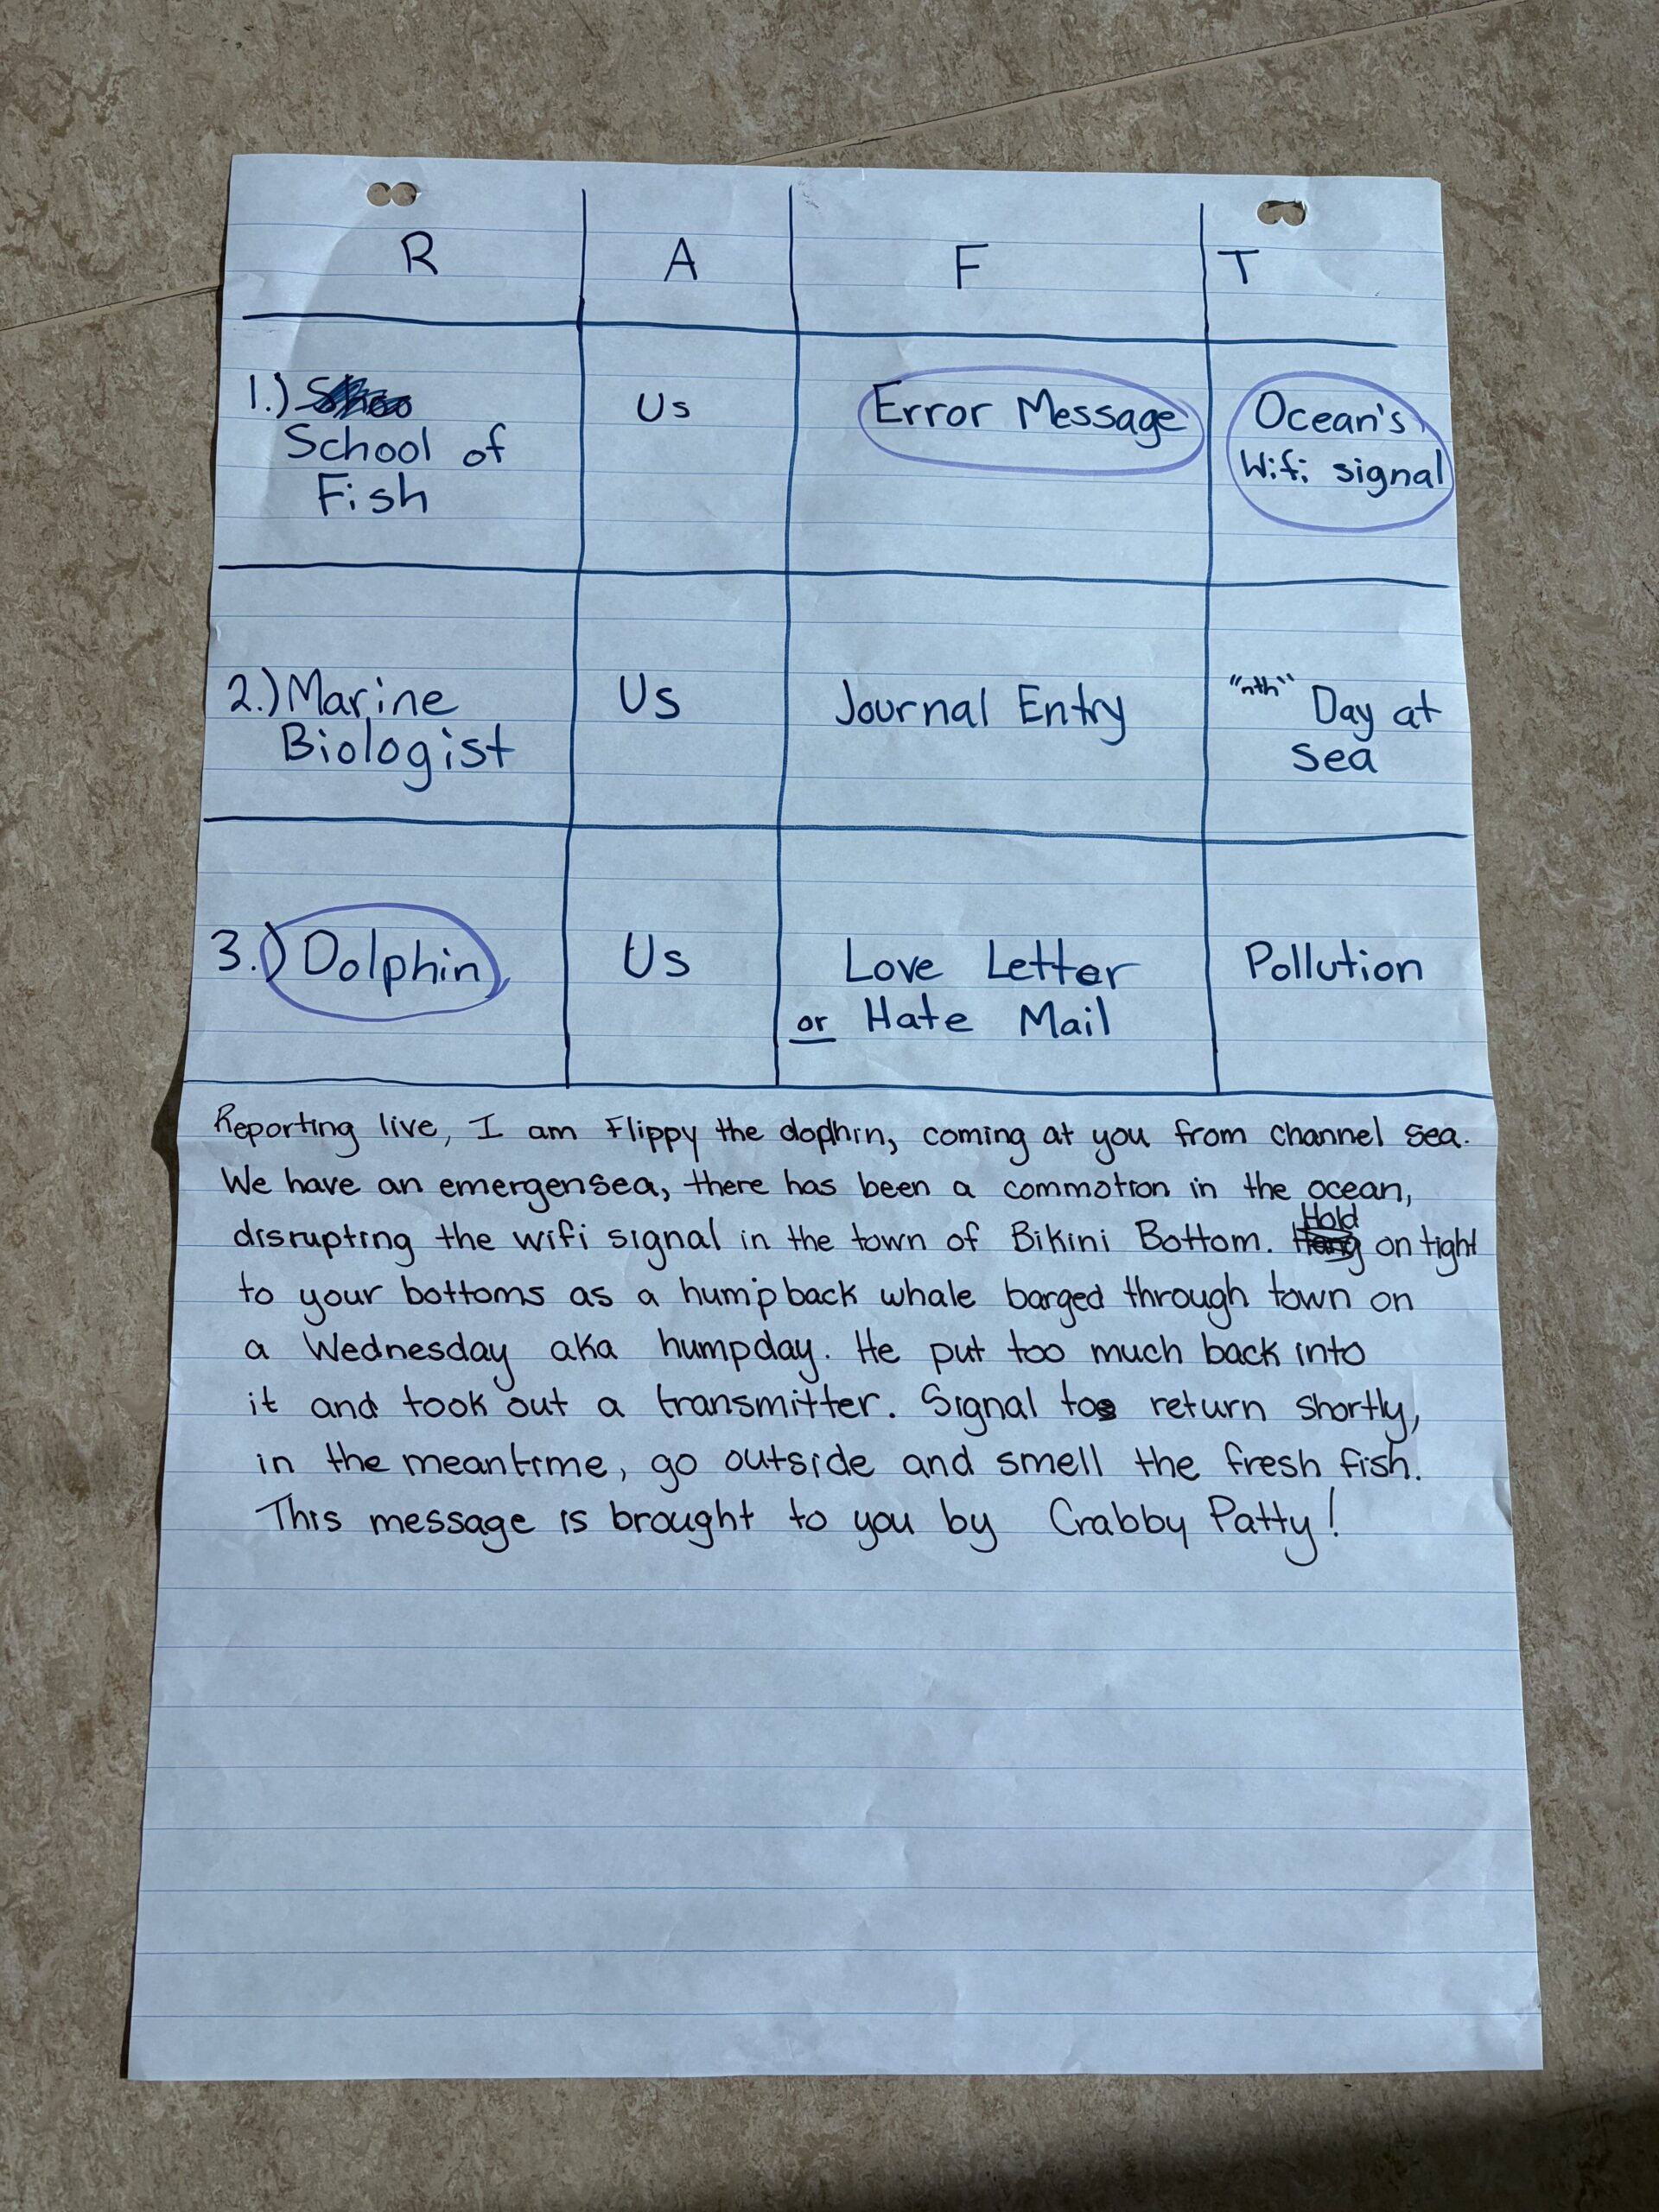 R A F T
1.) School of Fish Us Error Message Ocean's Wifi signal
2.) Marine Biologist Us Journal Entry "nth" Day at sea
3.) Dolphin Us Love Letter or Hate Mail Pollution
Reporting live, I am Flippy the dophin, coming at you from channel sea.
We have an emergensea, there has been a commotion in the ocean,
disrupting the wifi signal in the town of Bikini Bottom. Hold on tight
to your bottoms as a humpback whale barged through town on
a Wednesday aka humpday. He put too much back into
it and took out a transmitter. Signal to return shortly,
in the meantime, go outside and smell the fresh fish.
This message is brought to you by Crabby Patty!